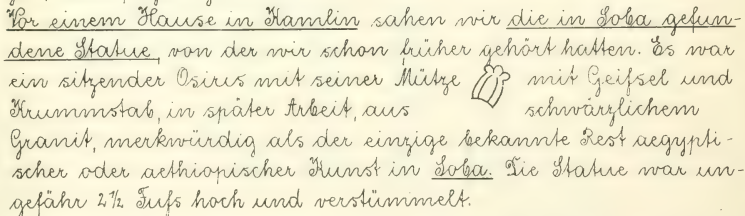 Vor einem Hause in Kamlin sahen wir die in Soba gefun-
dene Statue, von der wir schon früher gehört hatten. Es war
ein sitzender Osiris mit seiner Mütze mit Geifsel und
Krummstab, in später Arbeit, aus schwärzlichem
Granit, merkwürdig als der einzige bekannte Rest aegypti-
scher oder aethiopischer Kunst in Soba. Die Statue war un-
gefähr 2½ Fufs hoch und verstümmelt.